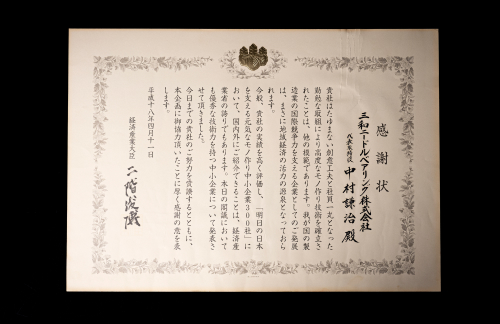 感謝状
三和ニードルベアリング株式会社
代表取締役 中村謙治 殿
貴社はたゆまない創意工夫と社員一丸となった
勤勉な取組により高度なモノ作り技術を確立さ
れたことは、他の模範であります。我が国の製
造業の国際競争力を支える企業としてのご発展
は、まさに地域経済の活力の源泉となっておら
れます。
今般、貴社の実績を高く評価し、「明日の日本
を支える元気なモノ作り中小企業300社」に
おいて、国内外にご紹介できることは、経済産
業省の誇りでもあります。本日の閣議において
も優秀な技術力を持つ中小企業について発表さ
せて頂きました。
今日までの貴社のご努力を賞讃するとともに、
本企画に御協力頂いたことに厚く感謝の意を表
します。
平成十八年四月十一日
経済産業大臣 二階俊博